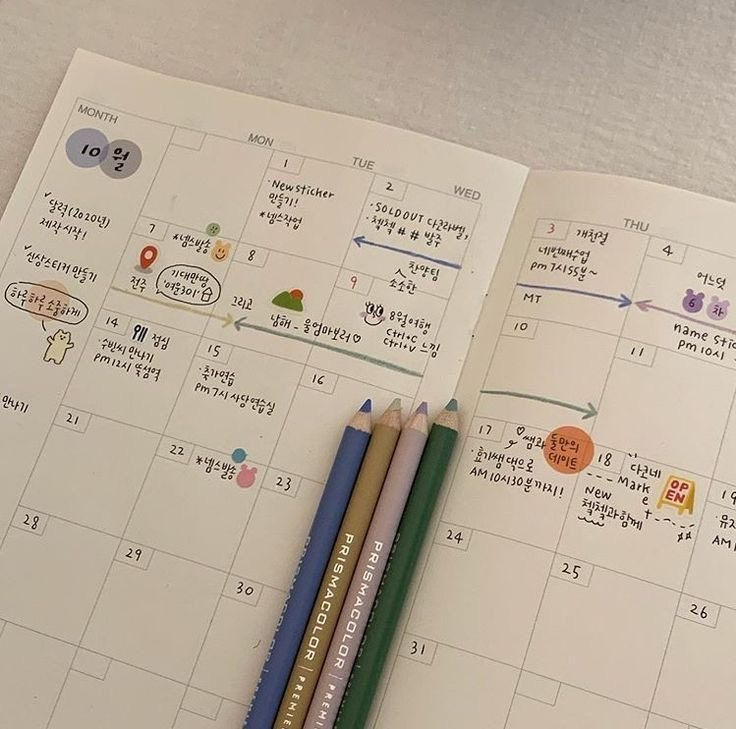 MONTH
MON
TUE
WED
THU
10월
✓달력(2020년)
제작시작!
✓신상스티커 만들기
하루하루 소중하게
만나기
1
·New sticker
만들기!
*넴스작업
2
·SOLDOUT 다크라벨,
·첵첵 # # 발주
찬양팀
소소한
3
개천절
네번째수업
pm 7시55분~
MT
4
어느덧
6 차
name stic
pm 10시
7
*넴스발송
전주
기대만땅
'여운301'
8
그리고
남해 - 울엄마보러♡
9
8월여행
Ctrl+C
Ctrl+V 느낌
10
11
14
점심
·수빈씨 만나기
pm12시 뚝섬역
15
·축가연습
pm 7시 사당연습실
16
17
♡쌤과
둘만의
데이트
·효기쌤댁으로
AM10시30분까지!
18
다코네
Market
OPEN
New
첵첵과함께
19
·유지
AM1
21
22
*넴스발송
23
24
25
26
28
29
30
31
PRISMACOLOR | PREMIE
PRISMACOLOR | PREMIE